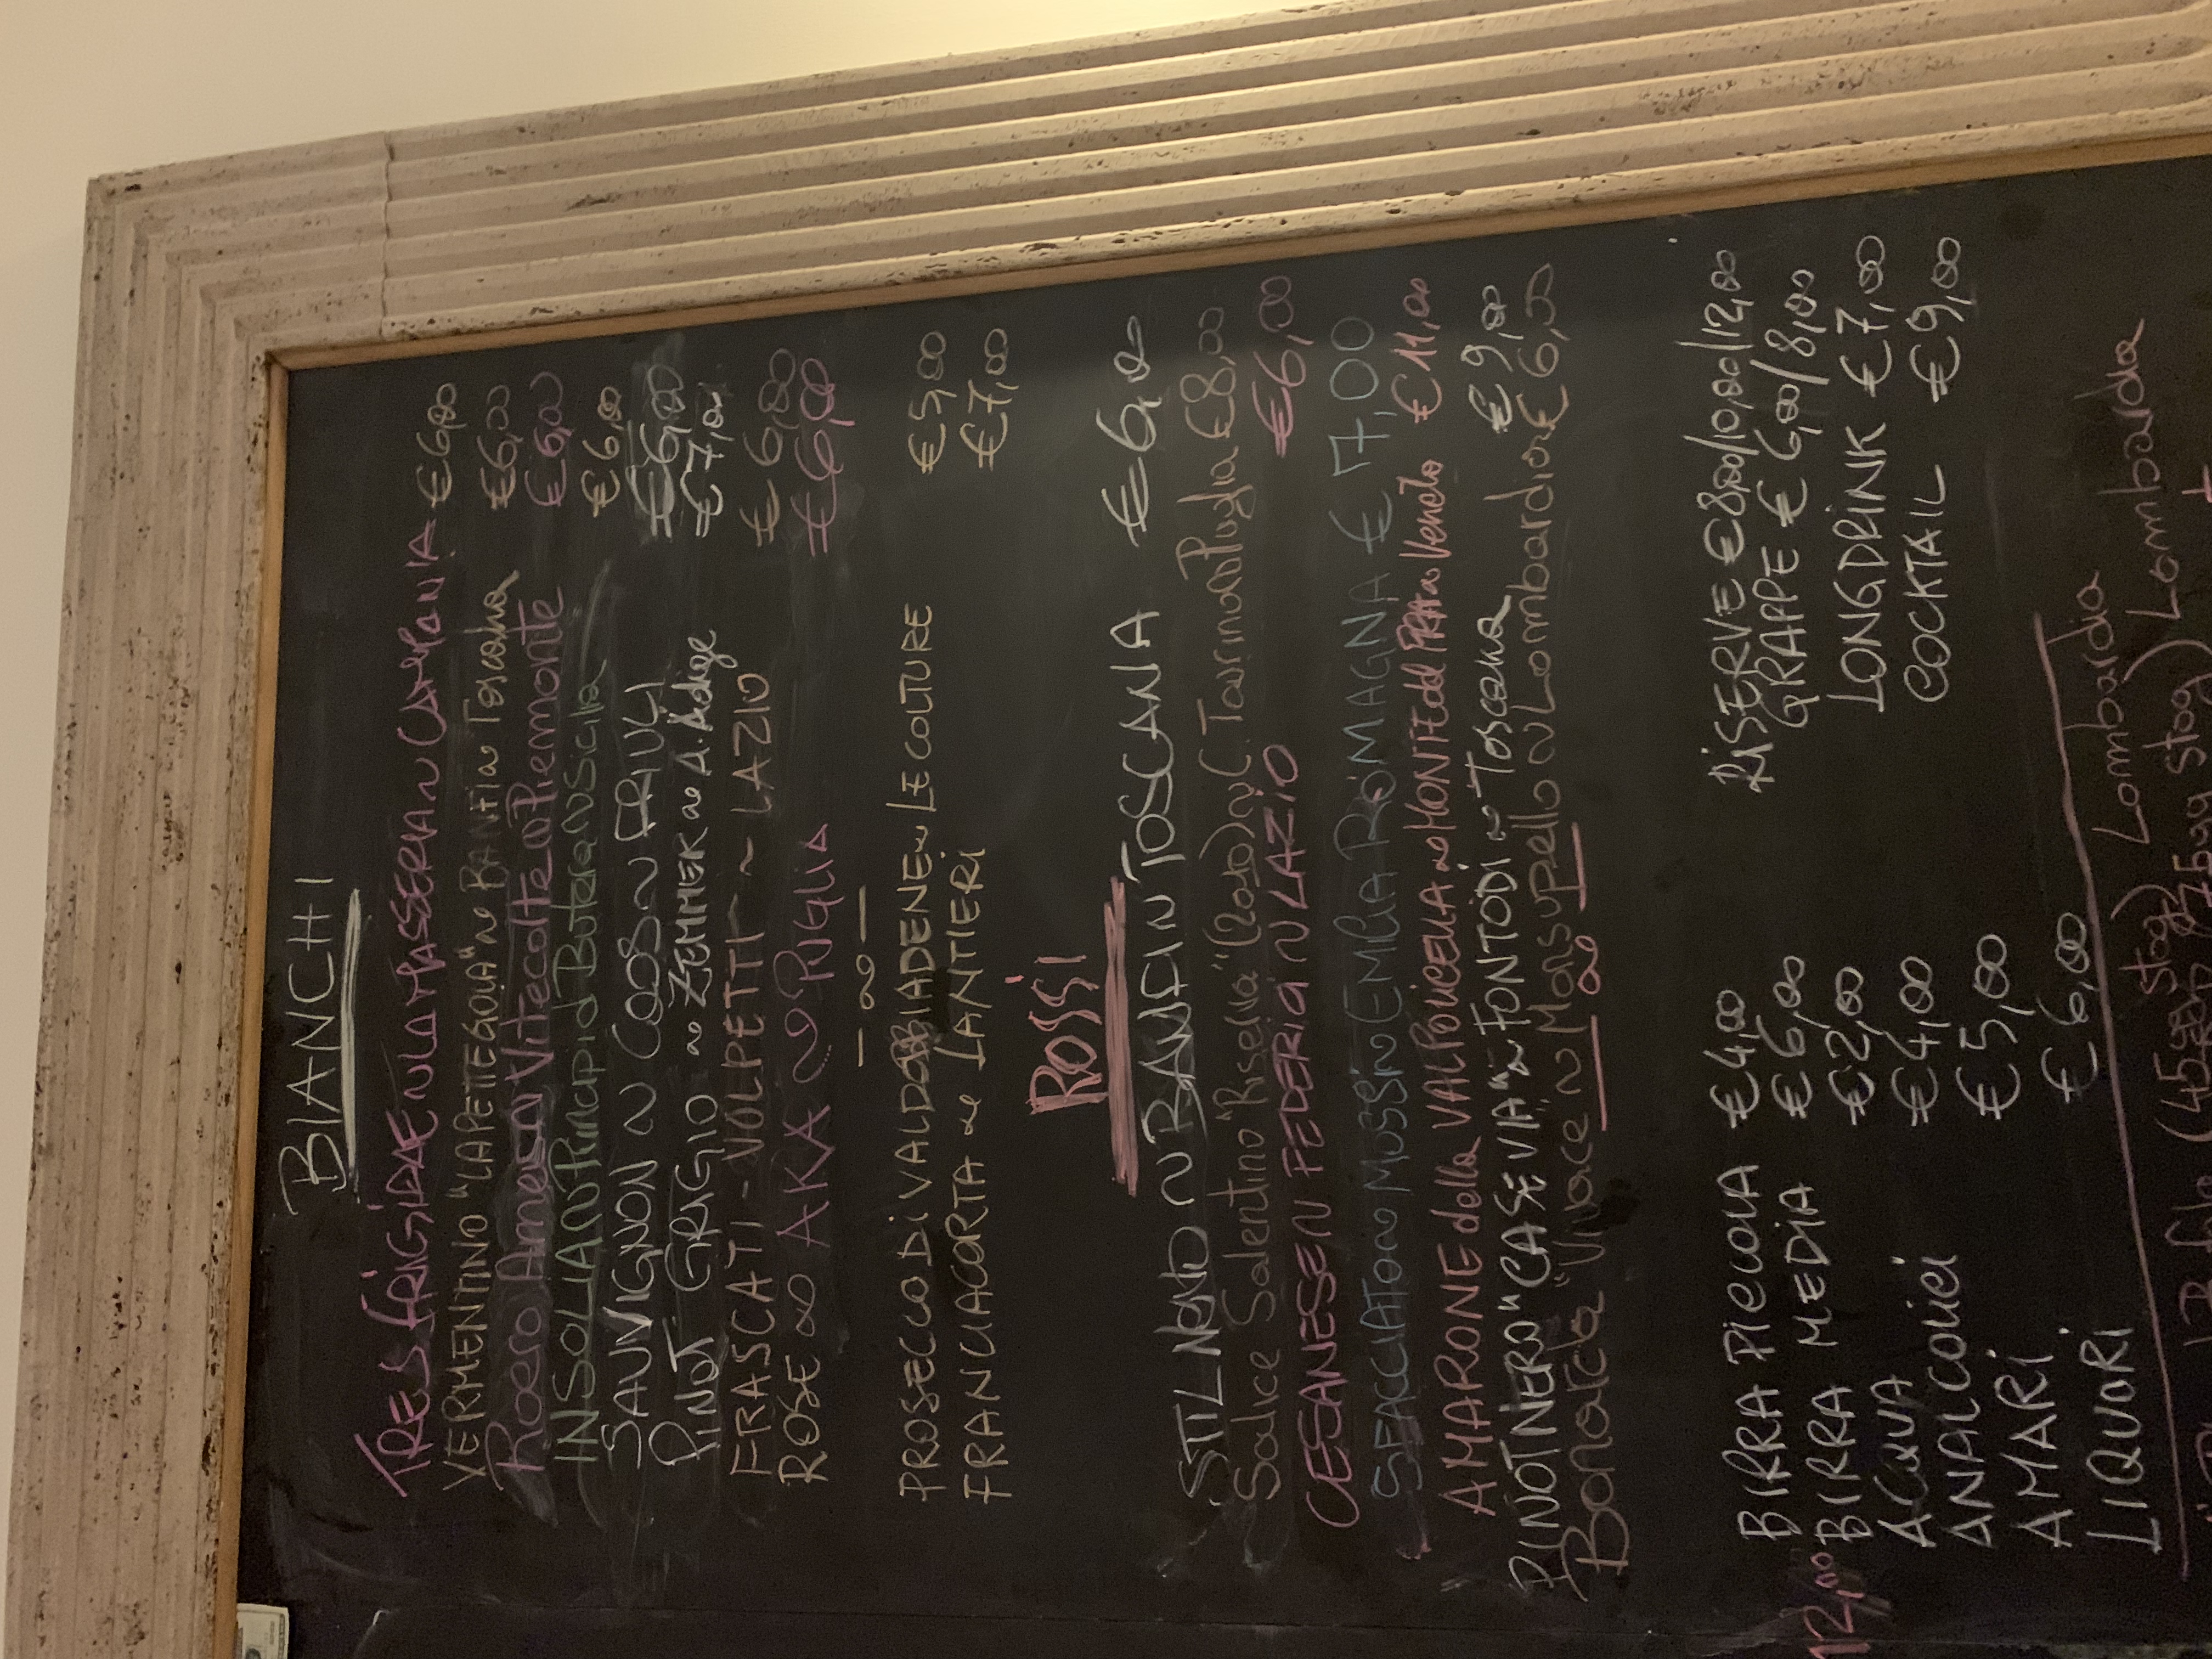 BIANCHI
TRES FRIGIDAE ~ LA MASSERIA ~ CAMPANIA €6,00
VERMENTINO "LA PETTEGOLA" ~ BANFI ~ Toscana €6,00
Roero Arneis ~ Vite Colte ~ Piemonte €6,00
INSOLIA ~ Principi di Butera ~ Sicilia €6,00
SAUVIGNON ~ COOS ~ FRIULI €6,00
PINOT GRIGIO ~ ZEMMER ~ A. Adige €7,00
FRASCATI - VOLPETTI ~ LAZIO € 6,00
ROSE ~ AKA ~ PUGLIA €6,00
PROSECCO DI VALDOBBIADENE ~ LE COLTURE €5,00
FRANCIACORTA ~ LANTIERI €7,00
ROSSI
STIL NOVO ~ BANFI ~ TOSCANA €6,00
Salice Salentino "Riserva" (2010) ~ C. Taurino ~ Puglia €8,00
CESANESE ~ FEDERICI ~ LAZIO €6,00
~ EMILIA ROMAGNA € 7,00
AMARONE della VALPOLICELLA ~ MONTE del FRA ~ Veneto €11,00
PINOT NERO "CASE VIA" ~ FONTODI ~ Toscana €9,00
Bonarda "Vivace ~ Monsupello ~ Lombardia € 6,00
BIRRA PICCOLA €4,00 RISERVE €8,00/10,00/12,00
BIRRA MEDIA €6,00 GRAPPE € 6,00/8,00
ACQUA €2,00 LONGDRINK €7,00
ANALCOLICI €4,00 COCKTAIL €9,00
AMARI €5,00
LIQUORI €6,00
12,00
stag) Lombardia
stag) Lombardia